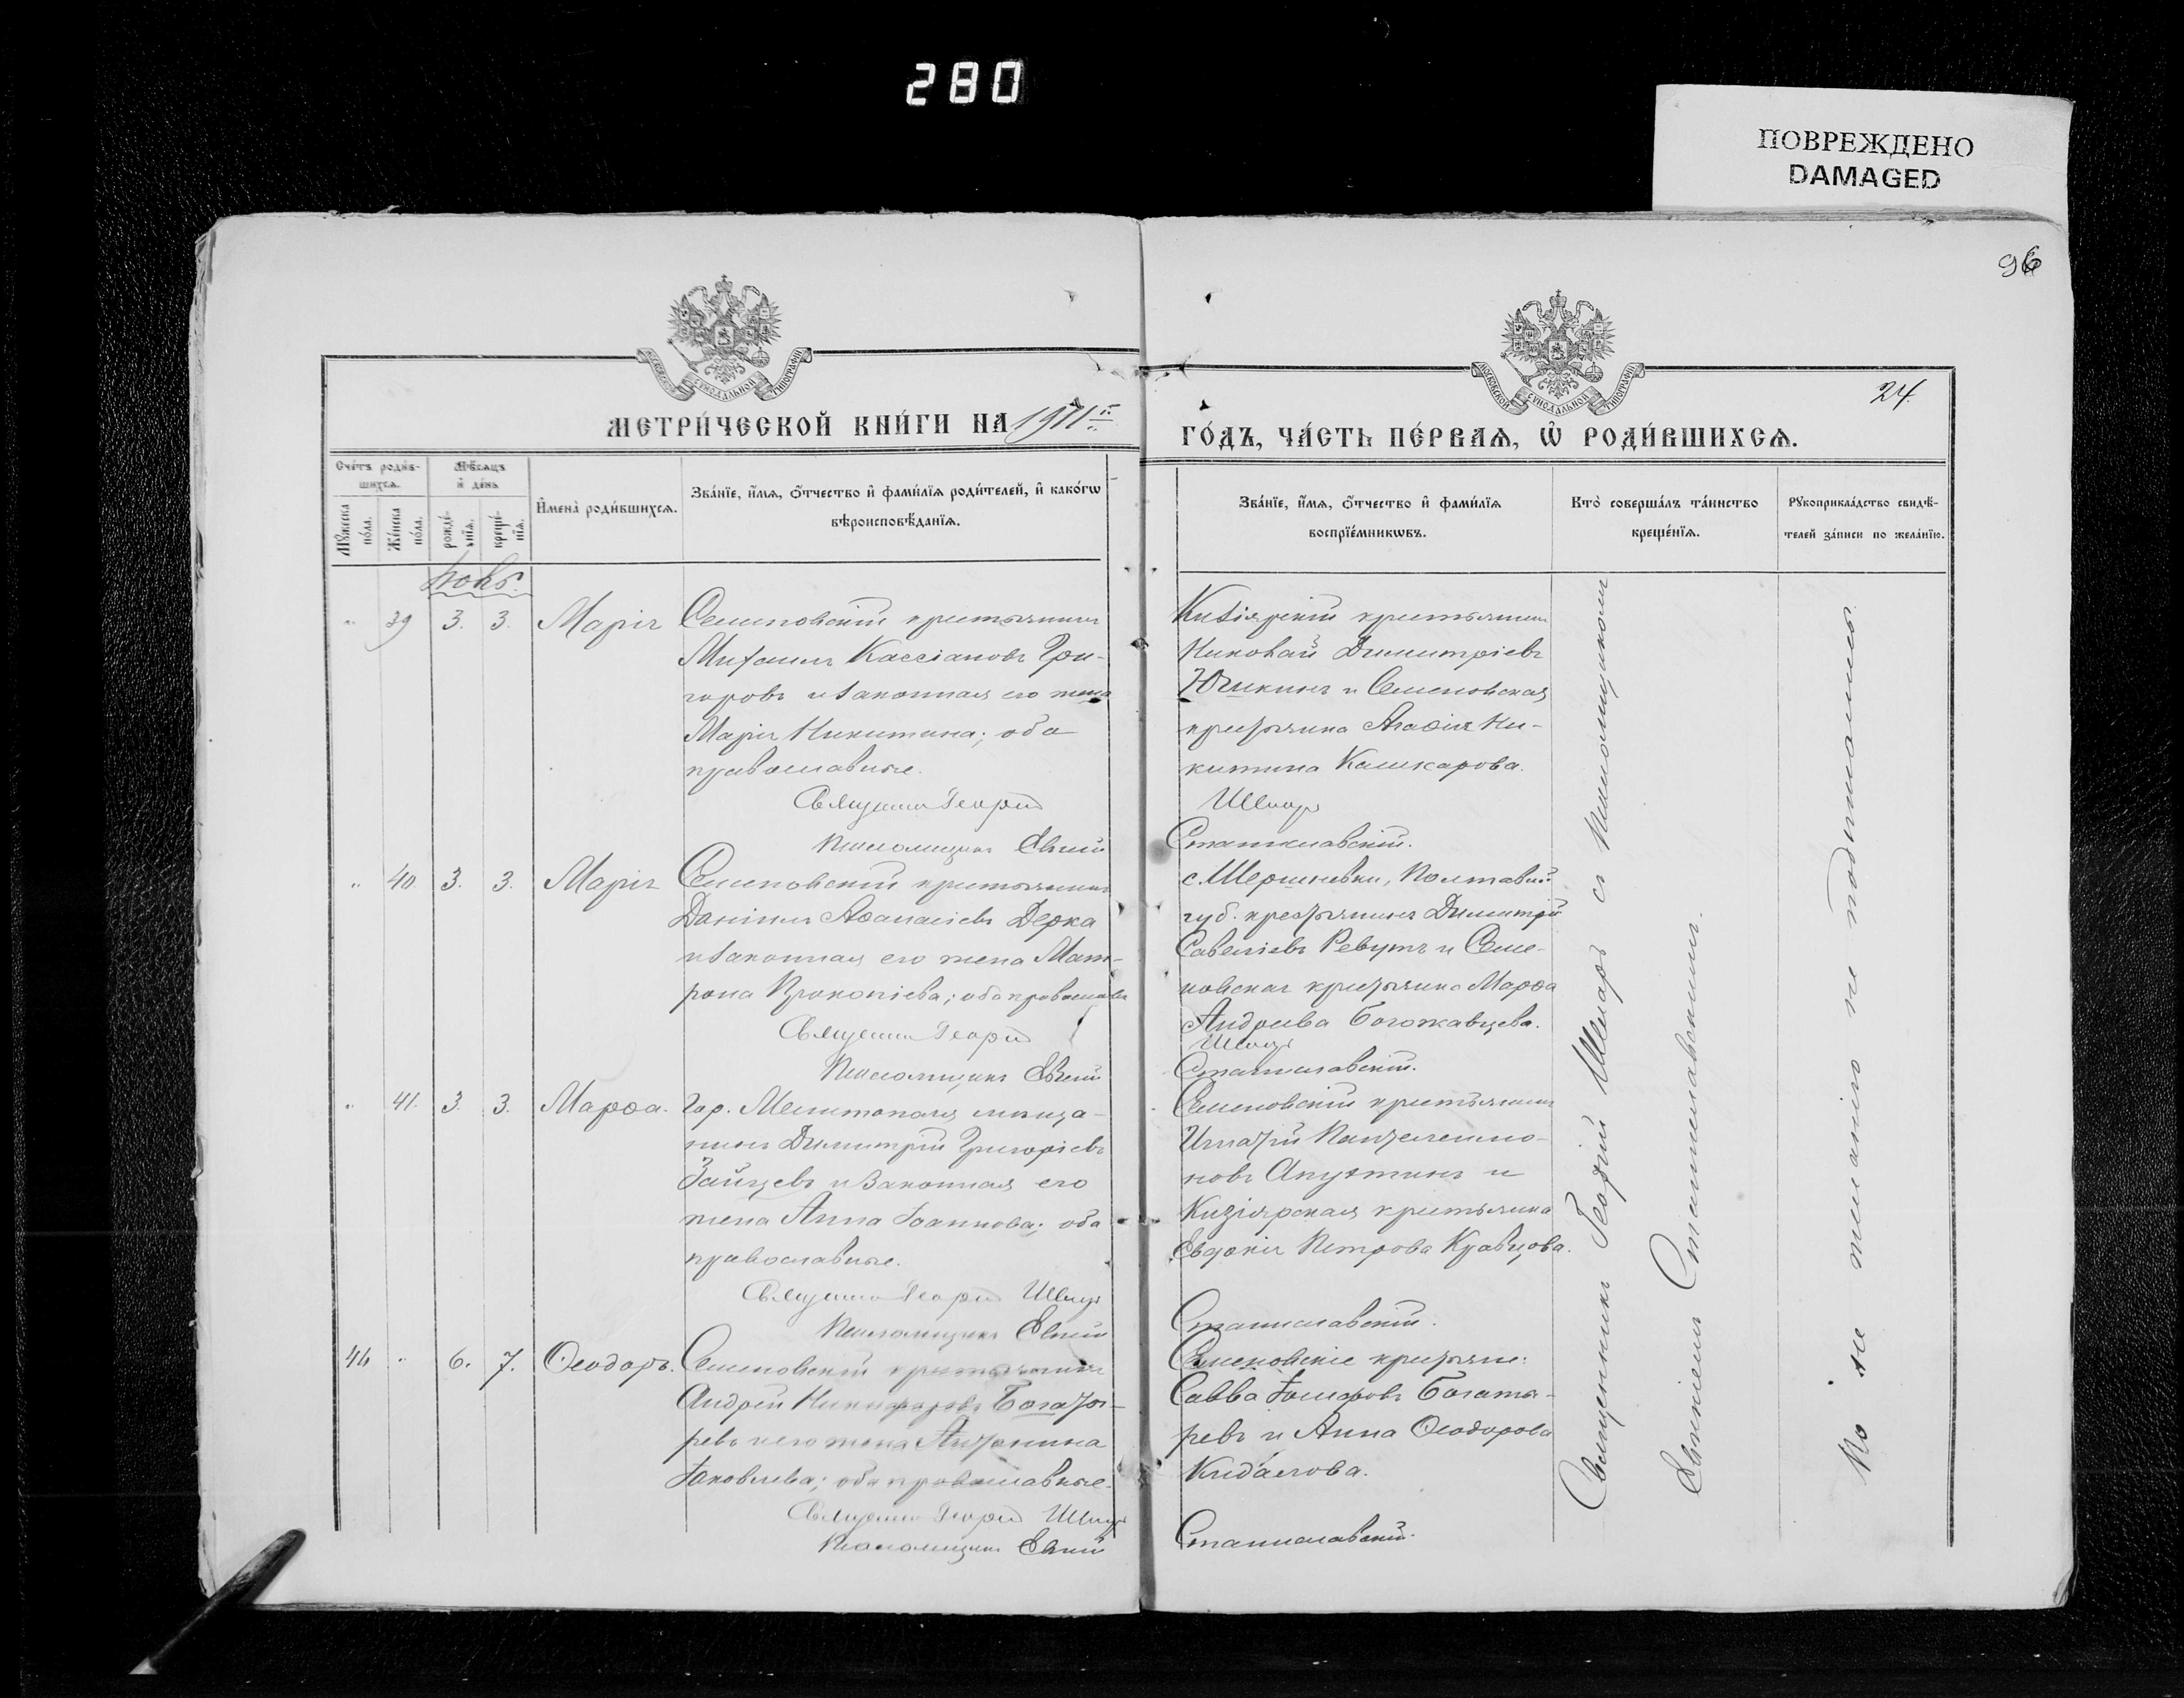 280
ПОВРЕЖДЕНО
DAMAGED
96
24.
МЕТРИ́ЧЕСКОЙ КНИ́ГИ НА 1911 г.
ГО́ДЪ, ЧА́СТЬ ПЕ́РВАѦ, Ѡ҆ РОДИ́ВШИХСѦ.
Сче́тъ роди́в-
шихсѧ.
Мѣ́сѧцъ
и҆ де́нь
Мꙋ́жеска
по́ла.
Же́нска
по́ла.
рожде́-
нїѧ.
креще́-
нїѧ.
И҆мена̀ роди́вшихсѧ.
Зва́нїе, и҆́мѧ, ѻ҆́тчество и҆ фами́лїѧ роди́телей, и҆ како́гѡ
вѣроисповѣ́данїѧ.
Зва́нїе, и҆́мѧ, ѻ҆́тчество и҆ фами́лїѧ
воспрїе́мникѡвъ.
Кто̀ соверша́лъ та́инство
креще́нїѧ.
Рꙋкоприкла́дство свидѣ́-
телей за́писи по жела́нїю.
39 3. 3. Марія
Семеновскій крестьянинъ
Михаилъ Кассіановъ Гри-
горовъ и законная его жена
Марія Никитина; оба
православные.
Священникъ Георгій
Псаломщикъ Евгеній
Кизіярскій крестьянинъ
Николай Димитріевъ
Юшкинъ и Семеновская
крестьянка Агаѳія Ни-
китина Кашкарова.
Шпаръ
Станиславскій.
40 3. 3. Марія
Семеновскій крестьянинъ
Даніилъ Аѳанасіевъ Дерка
и законная его жена Мат-
рона Прокопіева; оба православн
Священникъ Георгій
Псаломщикъ Евгеній
с. Шершневки, Полтавской
губ. крестьянинъ Димитрій
Савеліевъ Ревутъ и Семе-
новская крестьянка Марѳа
Андреева Богожавцева.
Шпаръ
Станиславскій.
41. 3. 3. Марѳа.
Гор. Мелитополя мѣща-
нинъ Димитрій Григоріевъ
Зайцевъ и законная его
жена Анна Іоаннова; оба
православные.
Священникъ Георгій Шпаръ
Псаломщикъ Евгеній
Семеновскій крестьянинъ
Игнатій Пантелеимо-
новъ Апухтинъ и
Кизіярская крестьянка
Евдокія Петрова Кравцова.
Станиславскій.
6. 7. Ѳеодоръ.
Семеновскій крестьянинъ
Андрей Никифоровъ Богаты-
ревъ и его жена Антонина
Іаковлева; оба православные.
Священникъ Георгій Шпаръ
Псаломщикъ Евгеній
Семеновскіе крестьяне:
Савва Іосифовъ Богаты-
ревъ и Анна Ѳеодорова
Кидалова.
Станиславскій.
Священникъ Георгій Шпаръ съ Псаломщикомъ
Евгеніемъ Станиславскимъ.
По не желанію не подписались.